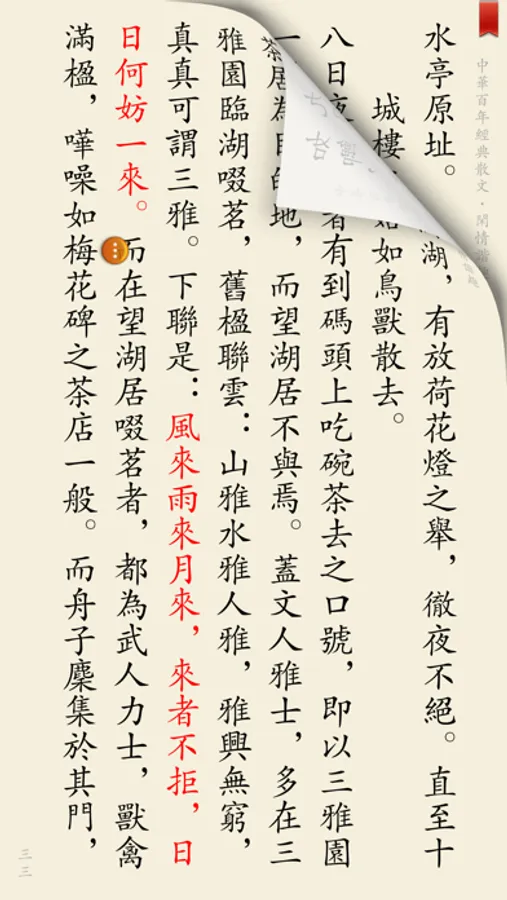 中華百年經典散文·閑情諧
水亭原址。湖，有放荷花燈之舉，徹夜不絕。直至十
城樓如鳥獸散去。
八日夜者有到碼頭上吃碗茶去之口號，即以三雅園
一居為目的地，而望湖居不與焉。蓋文人雅士，多在三
雅園臨湖啜茗，舊楹聯雲：山雅水雅人雅，雅興無窮，
真真可謂三雅。下聯是：風來雨來月來，來者不拒，日
日何妨一來。而在望湖居啜茗者，都為武人力士，獸禽
滿楹，嘩噪如梅花碑之茶店一般。而舟子麇集於其門，
三三